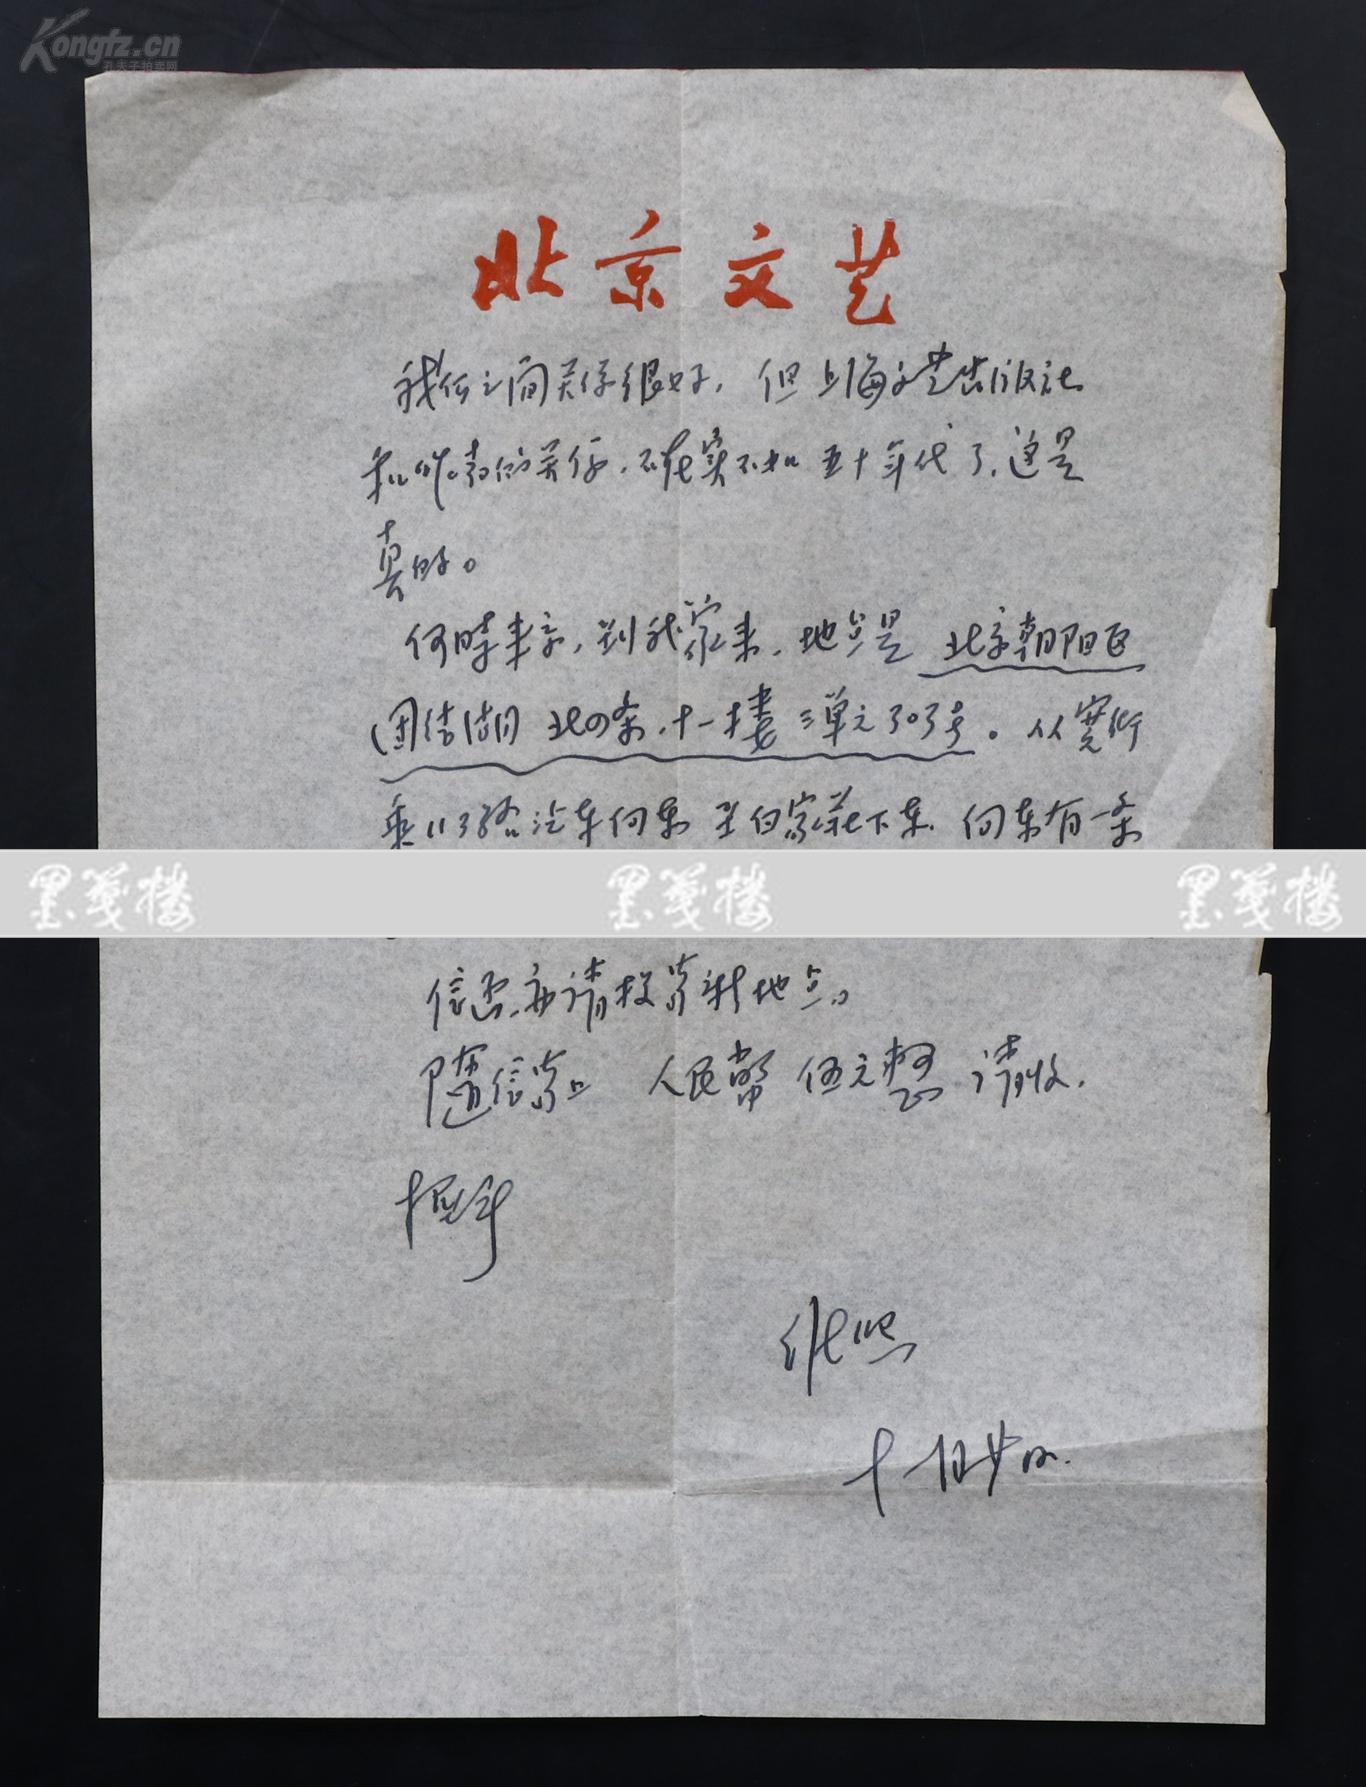 Kongfz.cn
孔夫子拍卖网
北京文艺
我们之间关系很好，但上海文艺出版社
和的关系，不如五十年代了，这是
真的。
何时来京，到我家来，地点是 北京朝阳区
团结湖 北四条，十一楼 三单元303号。从宽街
乘113路汽车向东 至白家庄下车，向东有一条
墨笺楼 墨笺楼 墨笺楼
信函，亦请投寄新地点。
随信寄上 人民币 伍元整 请收。
握手
维熙
十一月廿四